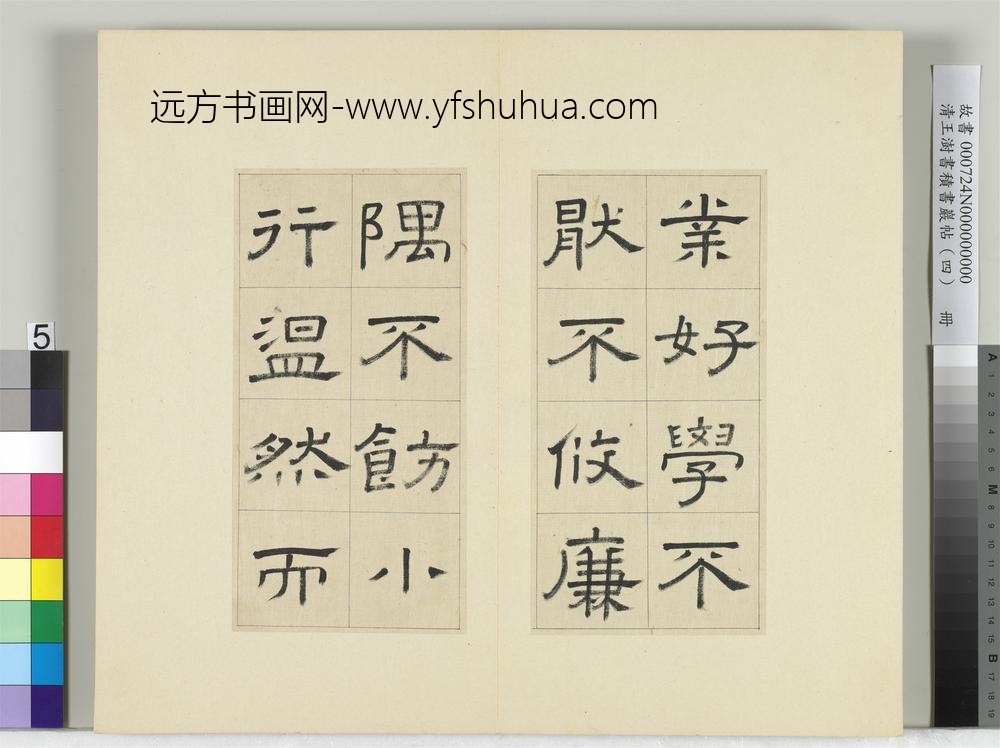 远方书画网-www.yfshuhua.com
業好學不
猒不攸廉
隅不飭小
行温然而
故書 000724N000000000
清王澍書積書巖帖(四) 冊
5
A 1 2 3 4 5 6 M 8 9 10 11 12 13 14 15 B 17 18 19